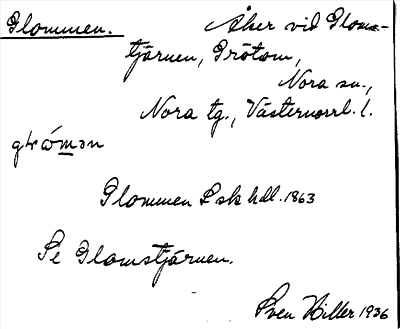 Glommen. Åker vid Gloms-
tjärnen, Grötom,
Nora sn.,
Nora tg., Västernorrl. l.
Glommen L sk hdl. 1863
Se Glomstjärnen.
Sven Hiller 1936